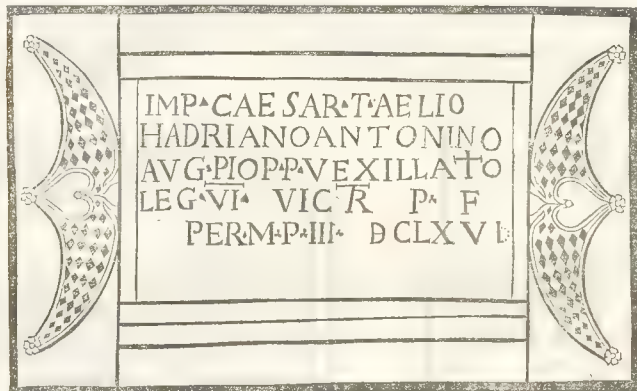 IMP·CAESAR·T·AELIO
HADRIANOANTONINO
AVG·PIOP·P·VEXILLATO
LEG·VI· VICTR P· F
PER·M·P·III· DCLXVI